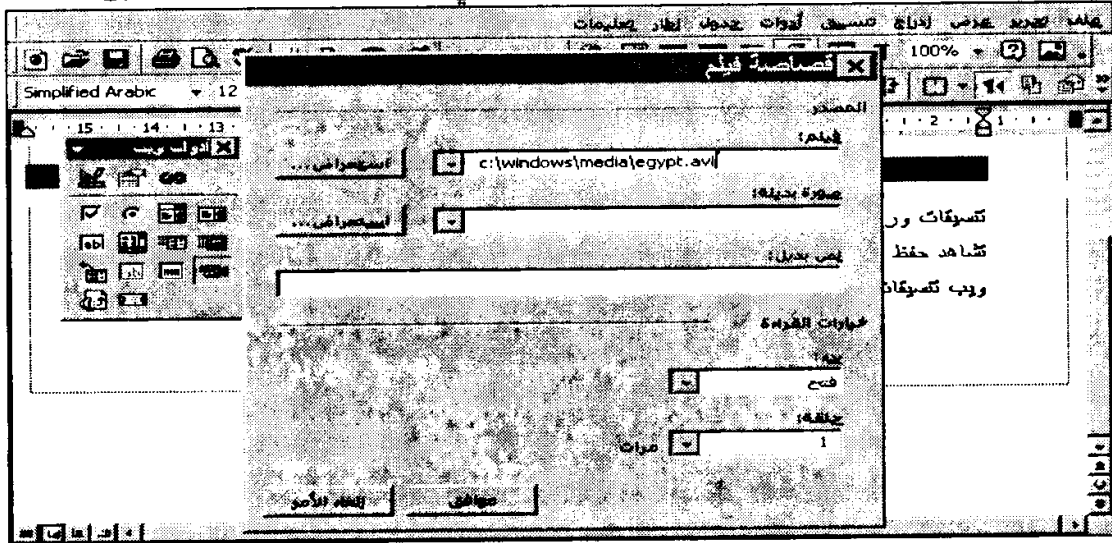 ملف تحرير عرض إدراج تنسيق أدوات جدول إطار تعليمات
100%
Simplified Arabic 12
15 14 13
2 1
أدوات ويب
قصاصة فيلم
المصدر
فيلم:
c:\windows\media\egypt.avi
استعراض...
صورة بديلة:
استعراض...
نص بديل:
خيارات القراءة
بدء:
فتح
حلقة:
1 مرات
موافق
إلغاء الأمر
تنسيقات ور
تشاهد حفظ
ويب تنسيقات